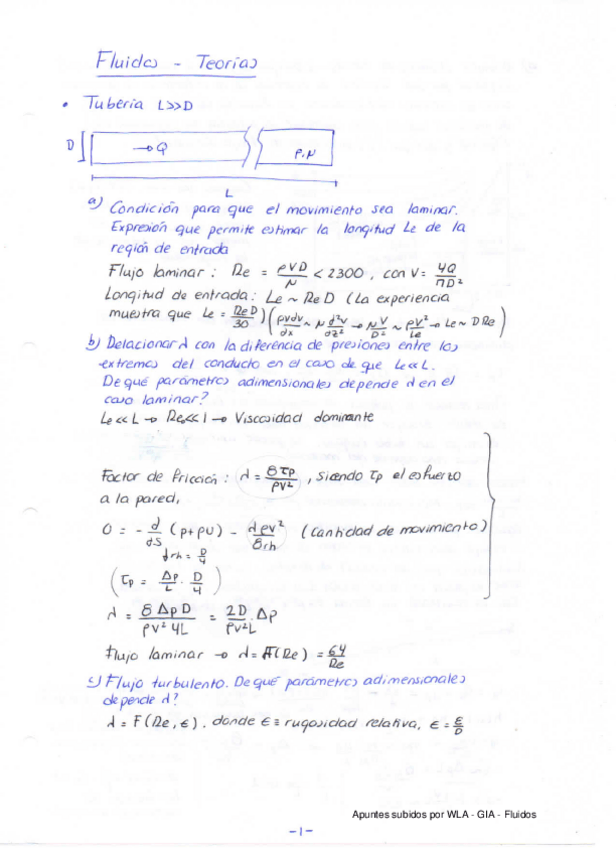 Fluidos - Teorías
• Tubería L>>D
D
→Q
ρ, μ
L
a) Condición para que el movimiento sea laminar.
Expresión que permite estimar la longitud Le de la
región de entrada
Flujo laminar: Re = ρVD/μ < 2300, con V = 4Q/ΠD²
Longitud de entrada: Le ~ Re D (La experiencia
muestra que Le = ReD/30) (ρvdv/dx ~ μ d²v/dz² → μV/D² ~ ρV²/Le → Le ~ D Re)
b) Relacionar λ con la diferencia de presiones entre los
extremos del conducto en el caso de que Le << L.
De qué parámetros adimensionales depende λ en el
caso laminar?
Le << L → Re << 1 → Viscosidad dominante
Factor de Fricción: λ = 8τp/ρV², siendo τp el esfuerzo
a la pared,
0 = - d/dS (p+ρU) - λρV²/8rh (Cantidad de movimiento)
↓ rh = D/4
(τp = Δp/L · D/4)
λ = 8 Δp D/ρV² 4L = 2D/ρV²L · Δp
Flujo laminar → λ = F(Re) = 64/Re
c) Flujo turbulento. De qué parámetros adimensionales
depende λ?
λ = F(Re, ϵ), donde ϵ = rugosidad relativa, ϵ = ε/D
Apuntes subidos por WLA - GIA - Fluidos
-1-